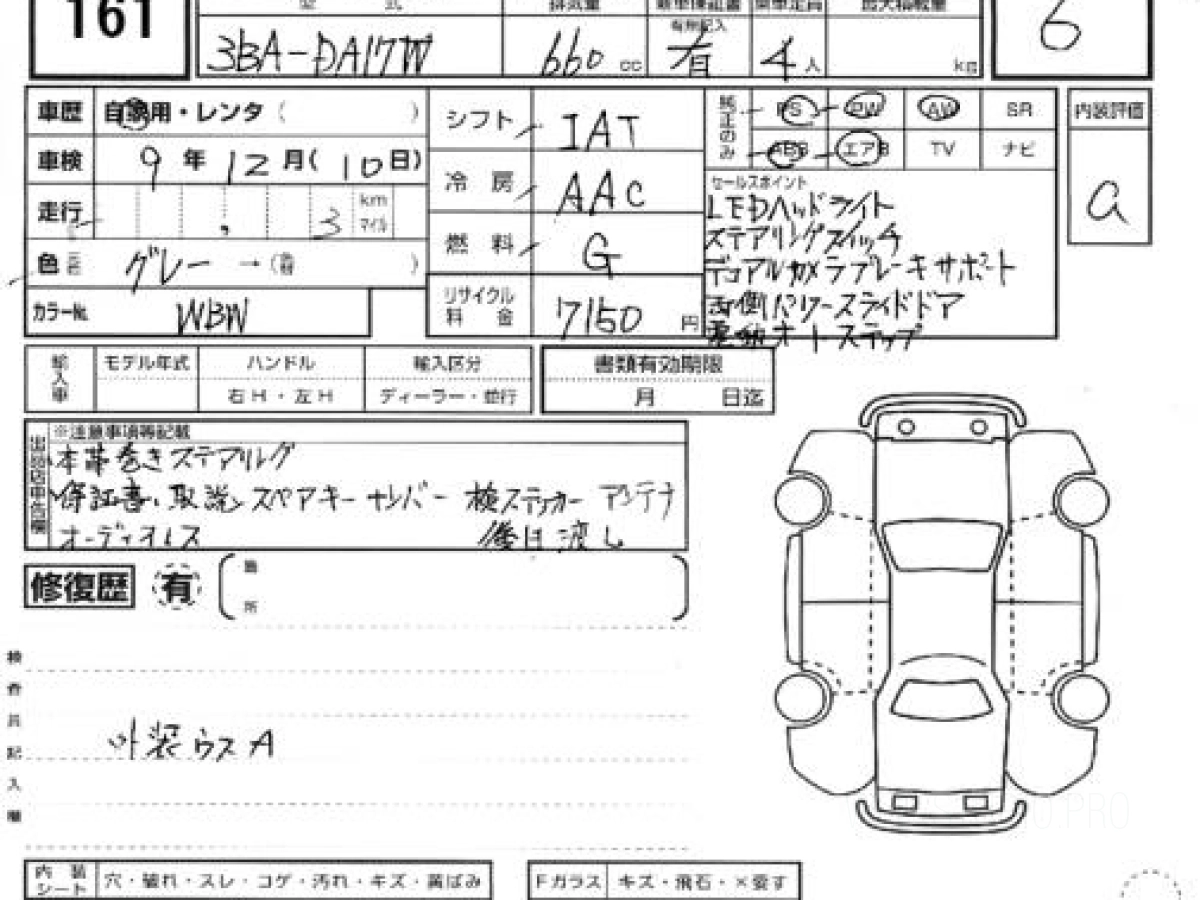 161
型 式
排気量
新車保証書
乗車定員
最大積載量
有無記入
3BA-DA17W
660 cc
有
4 人
kg
6
車歴 自家用・レンタ ( )
車検 9 年 12 月( 10 日)
走行 , 3 km マイル
色 グレー → ( )
カラー№ WBW
シフト IAT
冷 房 AAC
燃 料 G
リサイクル料金 7150 円
純正のみ
PS PW AW SR
ABS エアB TV ナビ
セールスポイント
LEDヘッドライト
ステアリングスイッチ
デュアルカメラブレーキサポート
両側パワースライドドア
電動オートステップ
内装評価
a
輸入車
モデル年式 ハンドル 輸入区分
右H・左H ディーラー・並行
書類有効期限
月 日迄
出品店申告欄
※注意事項等記載
本革巻きステアリング
保証書、取説、スペアキー ナンバー 検ステッカー アンテナ
オーディオレス 後日渡し
修復歴 有
箇所
検査員記入欄
外装ウスA
内装シート 穴・破れ・スレ・コゲ・汚れ・キズ・黄ばみ
Fガラス キズ・飛石・×要す
.PRO